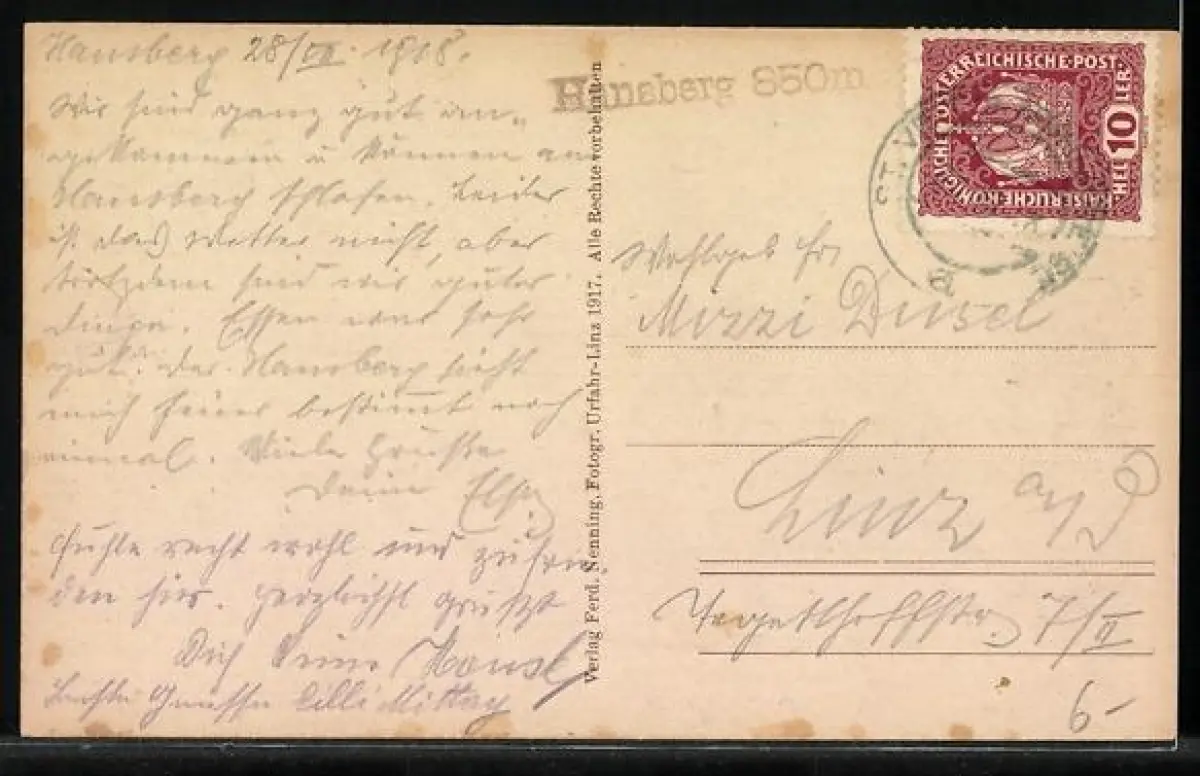 Hansberg 28/VII. 1918.
Wir sind ganz gut an-
gekommen u können am
Hansberg schlafen. Leider
ist das Wetter nicht, aber
trotzdem sind wir guter
Dinge. Essen war sehr
gut. Der Hansberg sieht
mich heuer bestimmt noch
einmal. Viele Grüsse
Deine Else.
Fühle recht wohl und zufrie-
den hier. Herzlichst grüßt
Dich Deine
Beste Grüsse Cilli Mittag
Verlag Ferd. Nenning, Fotogr. Urfahr-Linz 1917. Alle Rechte vorbehalten
Hansberg 850m
KAISERLICHE·KÖNIGLICHE ÖSTERREICHISCHE·POST·
10 HELLER
ST. V
a
Wohlgeb Fr
Mizzi Dusel
Linz a/D
Tegetthoffstr. 7/II
6-